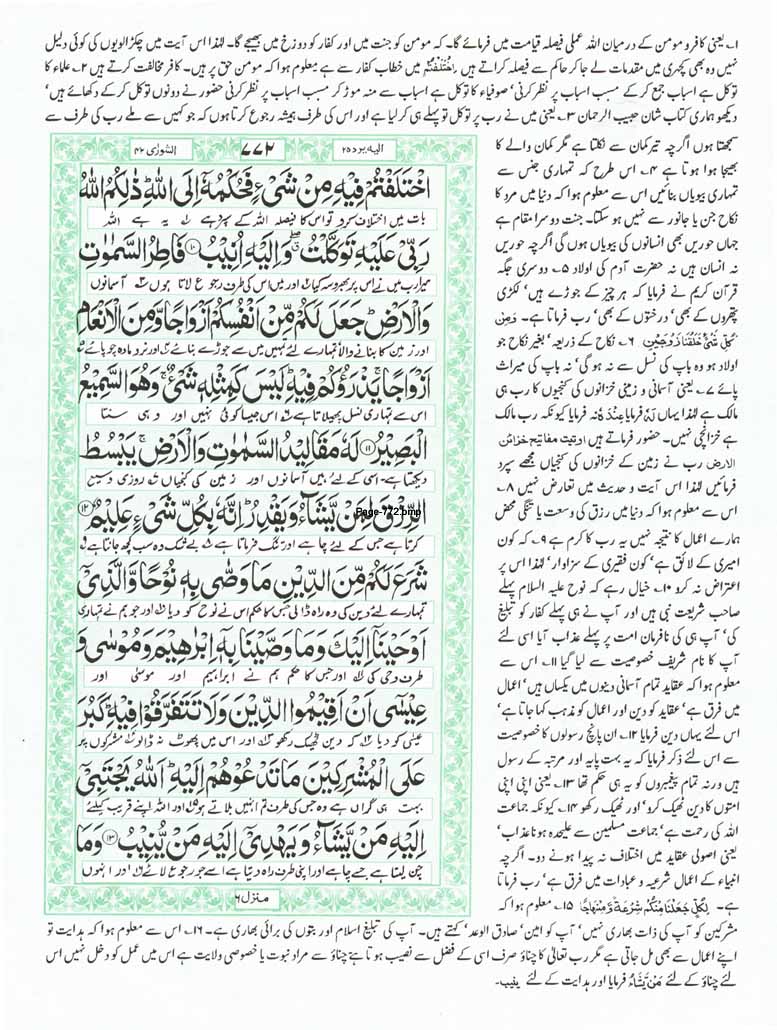 ۱؎ یعنی کافر و مومن کے درمیان اللہ عملی فیصلہ قیامت میں فرمائے گا۔ کہ مومن کو جنت میں اور کفار کو دوزخ میں بھیجے گا۔ لہٰذا اس آیت میں چکڑالویوں کی کوئی دلیل
نہیں وہ بھی کچہری میں مقدمات لے جا کر حاکم سے فیصلہ کراتے ہیں اِخْتَلَفْتُمْ میں خطاب کفار سے ہے معلوم ہوا کہ مومن حق پر ہیں۔ کافر مخالفت کرتے ہیں ۲؎ علماء کا
توکل ہے اسباب جمع کر کے مسبب اسباب پر نظر کرنی' صوفیاء کا توکل ہے اسباب سے منہ موڑ کر مسبب اسباب پر نظر کرنی حضور نے دونوں توکل کر کے دکھائے ہیں'
دیکھو ہماری کتاب شان حبیب الرحمان ۳؎ یعنی میں نے رب پر توکل تو پہلے ہی کر لیا ہے اور اس کی طرف ہمیشہ رجوع کرتا ہوں کہ جو کہیں سے ملے رب کی طرف سے
سمجھتا ہوں اگرچہ تیر کمان سے نکلتا ہے مگر کمان والے کا
بھیجا ہوا ہوتا ہے ۴؎ اس طرح کہ تمہاری جنس سے
تمہاری بیویاں بنائیں اس سے معلوم ہوا کہ دنیا میں مرد کا
نکاح جن یا جانور سے نہیں ہو سکتا۔ جنت دوسرا مقام ہے
جہاں حوریں بھی انسانوں کی بیویاں ہوں گی اگرچہ حوریں
نہ انسان ہیں نہ حضرت آدم کی اولاد ۵؎ دوسری جگہ
قرآن کریم نے فرمایا کہ ہر چیز کے جوڑے ہیں' لکڑی
پتھروں کے بھی' درختوں کے بھی' رب فرماتا ہے۔ وَمِنْ
كُلِّ شَيْءٍ خَلَقْنَا زَوْجَيْنِ ۶؎ نکاح کے ذریعہ' بغیر نکاح جو
اولاد ہو وہ باپ کی نسل سے نہ ہوگی' نہ باپ کی میراث
پائے ۷؎ یعنی آسمانی و زمینی خزانوں کی کنجیوں کا رب ہی
مالک ہے لہٰذا یہاں لَهٗ فرمایا عِنْدَهٗ نہ فرمایا کیونکہ رب مالک
ہے خزانچی نہیں۔ حضور فرماتے ہیں اوتیت مفاتیح خزائن
الارض رب نے زمین کے خزانوں کی کنجیاں مجھے سپرد
فرمائیں لہٰذا اس آیت و حدیث میں تعارض نہیں ۸؎
اس سے معلوم ہوا کہ دنیا میں رزق کی وسعت یا تنگی محض
ہمارے اعمال کا نتیجہ نہیں یہ رب کا کرم ہے ۹؎ کہ کون
امیری کے لائق ہے' کون فقیری کے سزاوار' لہٰذا اس پر
اعتراض نہ کرو ۱۰؎ خیال رہے کہ نوح علیہ السلام پہلے
صاحب شریعت نبی ہیں اور آپ نے ہی پہلے کفار کو تبلیغ
کی' آپ ہی کی نافرمان امت پر پہلے عذاب آیا اسی لئے
آپ کا نام شریف خصوصیت سے لیا گیا ۱۱؎ اس سے
معلوم ہوا کہ عقاید تمام آسمانی دینوں میں یکساں ہیں' اعمال
میں فرق ہے' عقاید کو دین اور اعمال کو مذہب کہا جاتا ہے'
اس لئے یہاں دین فرمایا ۱۲؎ ان پانچ رسولوں کا خصوصیت
سے اس لئے ذکر فرمایا کہ یہ بہت پایہ اور مرتبہ کے رسول
ہیں ورنہ تمام پیغمبروں کو یہ ہی حکم تھا ۱۳؎ یعنی اپنی اپنی
امتوں کا دین ٹھیک کرو' اور ٹھیک رکھو ۱۴؎ کیونکہ جماعت
اللہ کی رحمت ہے' جماعت مسلمین سے علیحدہ ہونا عذاب'
یعنی اصولی عقاید میں اختلاف نہ پیدا ہونے دو۔ اگرچہ
انبیاء کے اعمال شرعیہ و عبادات میں فرق ہے' رب فرماتا
ہے۔ لِكُلٍّ جَعَلْنَا مِنْكُمْ شِرْعَةً وَّمِنْهَاجًا ۱۵؎ معلوم ہوا کہ
الیہ یرد ۲۵
۷۷۲
الشوری ۴۲
اخْتَلَفْتُمْ فِيْهِ مِنْ شَيْءٍ فَحُكْمُهٗٓ اِلَى اللّٰهِ ذٰلِكُمُ اللّٰهُ
بات میں اختلاف کرو تو اس کا فیصلہ اللہ کے سپرد ہے یہ ہے اللہ
رَبِّيْ عَلَيْهِ تَوَكَّلْتُ وَاِلَيْهِ اُنِيْبُ ۱۰ فَاطِرُ السَّمٰوٰتِ
میرا رب میں نے اس پر بھروسہ کیا اور میں اس کی طرف رجوع لاتا ہوں آسمانوں
وَالْاَرْضِ جَعَلَ لَكُمْ مِّنْ اَنْفُسِكُمْ اَزْوَاجًا وَّمِنَ الْاَنْعَامِ
اور زمین کا بنانے والا تمہارے لئے تمہیں میں سے جوڑے بنائے اور نر و مادہ چوپائے
اَزْوَاجًا يَذْرَؤُكُمْ فِيْهِ لَيْسَ كَمِثْلِهٖ شَيْءٌ وَهُوَ السَّمِيْعُ
اس سے تمہاری نسل پھیلاتا ہے اس جیسا کوئی نہیں اور وہی سنتا
الْبَصِيْرُ ۱۱ لَهٗ مَقَالِيْدُ السَّمٰوٰتِ وَالْاَرْضِ يَبْسُطُ
دیکھتا ہے۔ اسی کے لئے ہیں آسمانوں اور زمین کی کنجیاں روزی وسیع
الرِّزْقَ لِمَنْ يَّشَآءُ وَيَقْدِرُ اِنَّهٗ بِكُلِّ شَيْءٍ عَلِيْمٌ ۱۲
Page-772.bmp
کرتا ہے جس کے لئے چاہے اور تنگ فرماتا ہے بے شک وہ سب کچھ جانتا ہے
شَرَعَ لَكُمْ مِّنَ الدِّيْنِ مَا وَصّٰى بِهٖ نُوْحًا وَّالَّذِيْٓ
تمہارے لئے دین کی وہ راہ ڈالی جس کا حکم اس نے نوح کو دیا اور جو ہم نے تمہاری
اَوْحَيْنَآ اِلَيْكَ وَمَا وَصَّيْنَا بِهٖٓ اِبْرٰهِيْمَ وَمُوْسٰى وَ
طرف وحی کی اور جس کا حکم ہم نے ابراہیم اور موسٰی اور
عِيْسٰٓى اَنْ اَقِيْمُوا الدِّيْنَ وَلَا تَتَفَرَّقُوْا فِيْهِ كَبُرَ
عیسٰی کو دیا کہ دین ٹھیک رکھو اور اس میں پھوٹ نہ ڈالو مشرکوں پر
عَلَى الْمُشْرِكِيْنَ مَا تَدْعُوْهُمْ اِلَيْهِ اَللّٰهُ يَجْتَبِيْٓ
بہت ہی گراں ہے وہ جس کی طرف تم انہیں بلاتے ہو اور اللہ اپنے قریب کیلئے
اِلَيْهِ مَنْ يَّشَآءُ وَيَهْدِيْٓ اِلَيْهِ مَنْ يُّنِيْبُ ۱۳ وَمَا
چن لیتا ہے جسے چاہے اور اپنی طرف راہ دیتا ہے اسے جو رجوع لائے اور انہوں
منزل ۶
مشرکین کو آپ کی ذات بھاری نہیں' آپ کو امین' صادق الوعد' کہتے ہیں۔ آپ کی تبلیغ اسلام اور بتوں کی برائی بھاری ہے۔ ۱۶؎ اس سے معلوم ہوا کہ ہدایت تو
اپنے اعمال سے بھی مل جاتی ہے مگر رب تعالیٰ کا چناؤ صرف اسی کے فضل سے نصیب ہوتا ہے چناؤ سے مراد نبوت یا خصوصی ولایت ہے اس میں عمل کو دخل نہیں اس
لئے چناؤ کے لئے مَنْ يَّشَآءُ فرمایا اور ہدایت کے لئے یُنِیْب۔